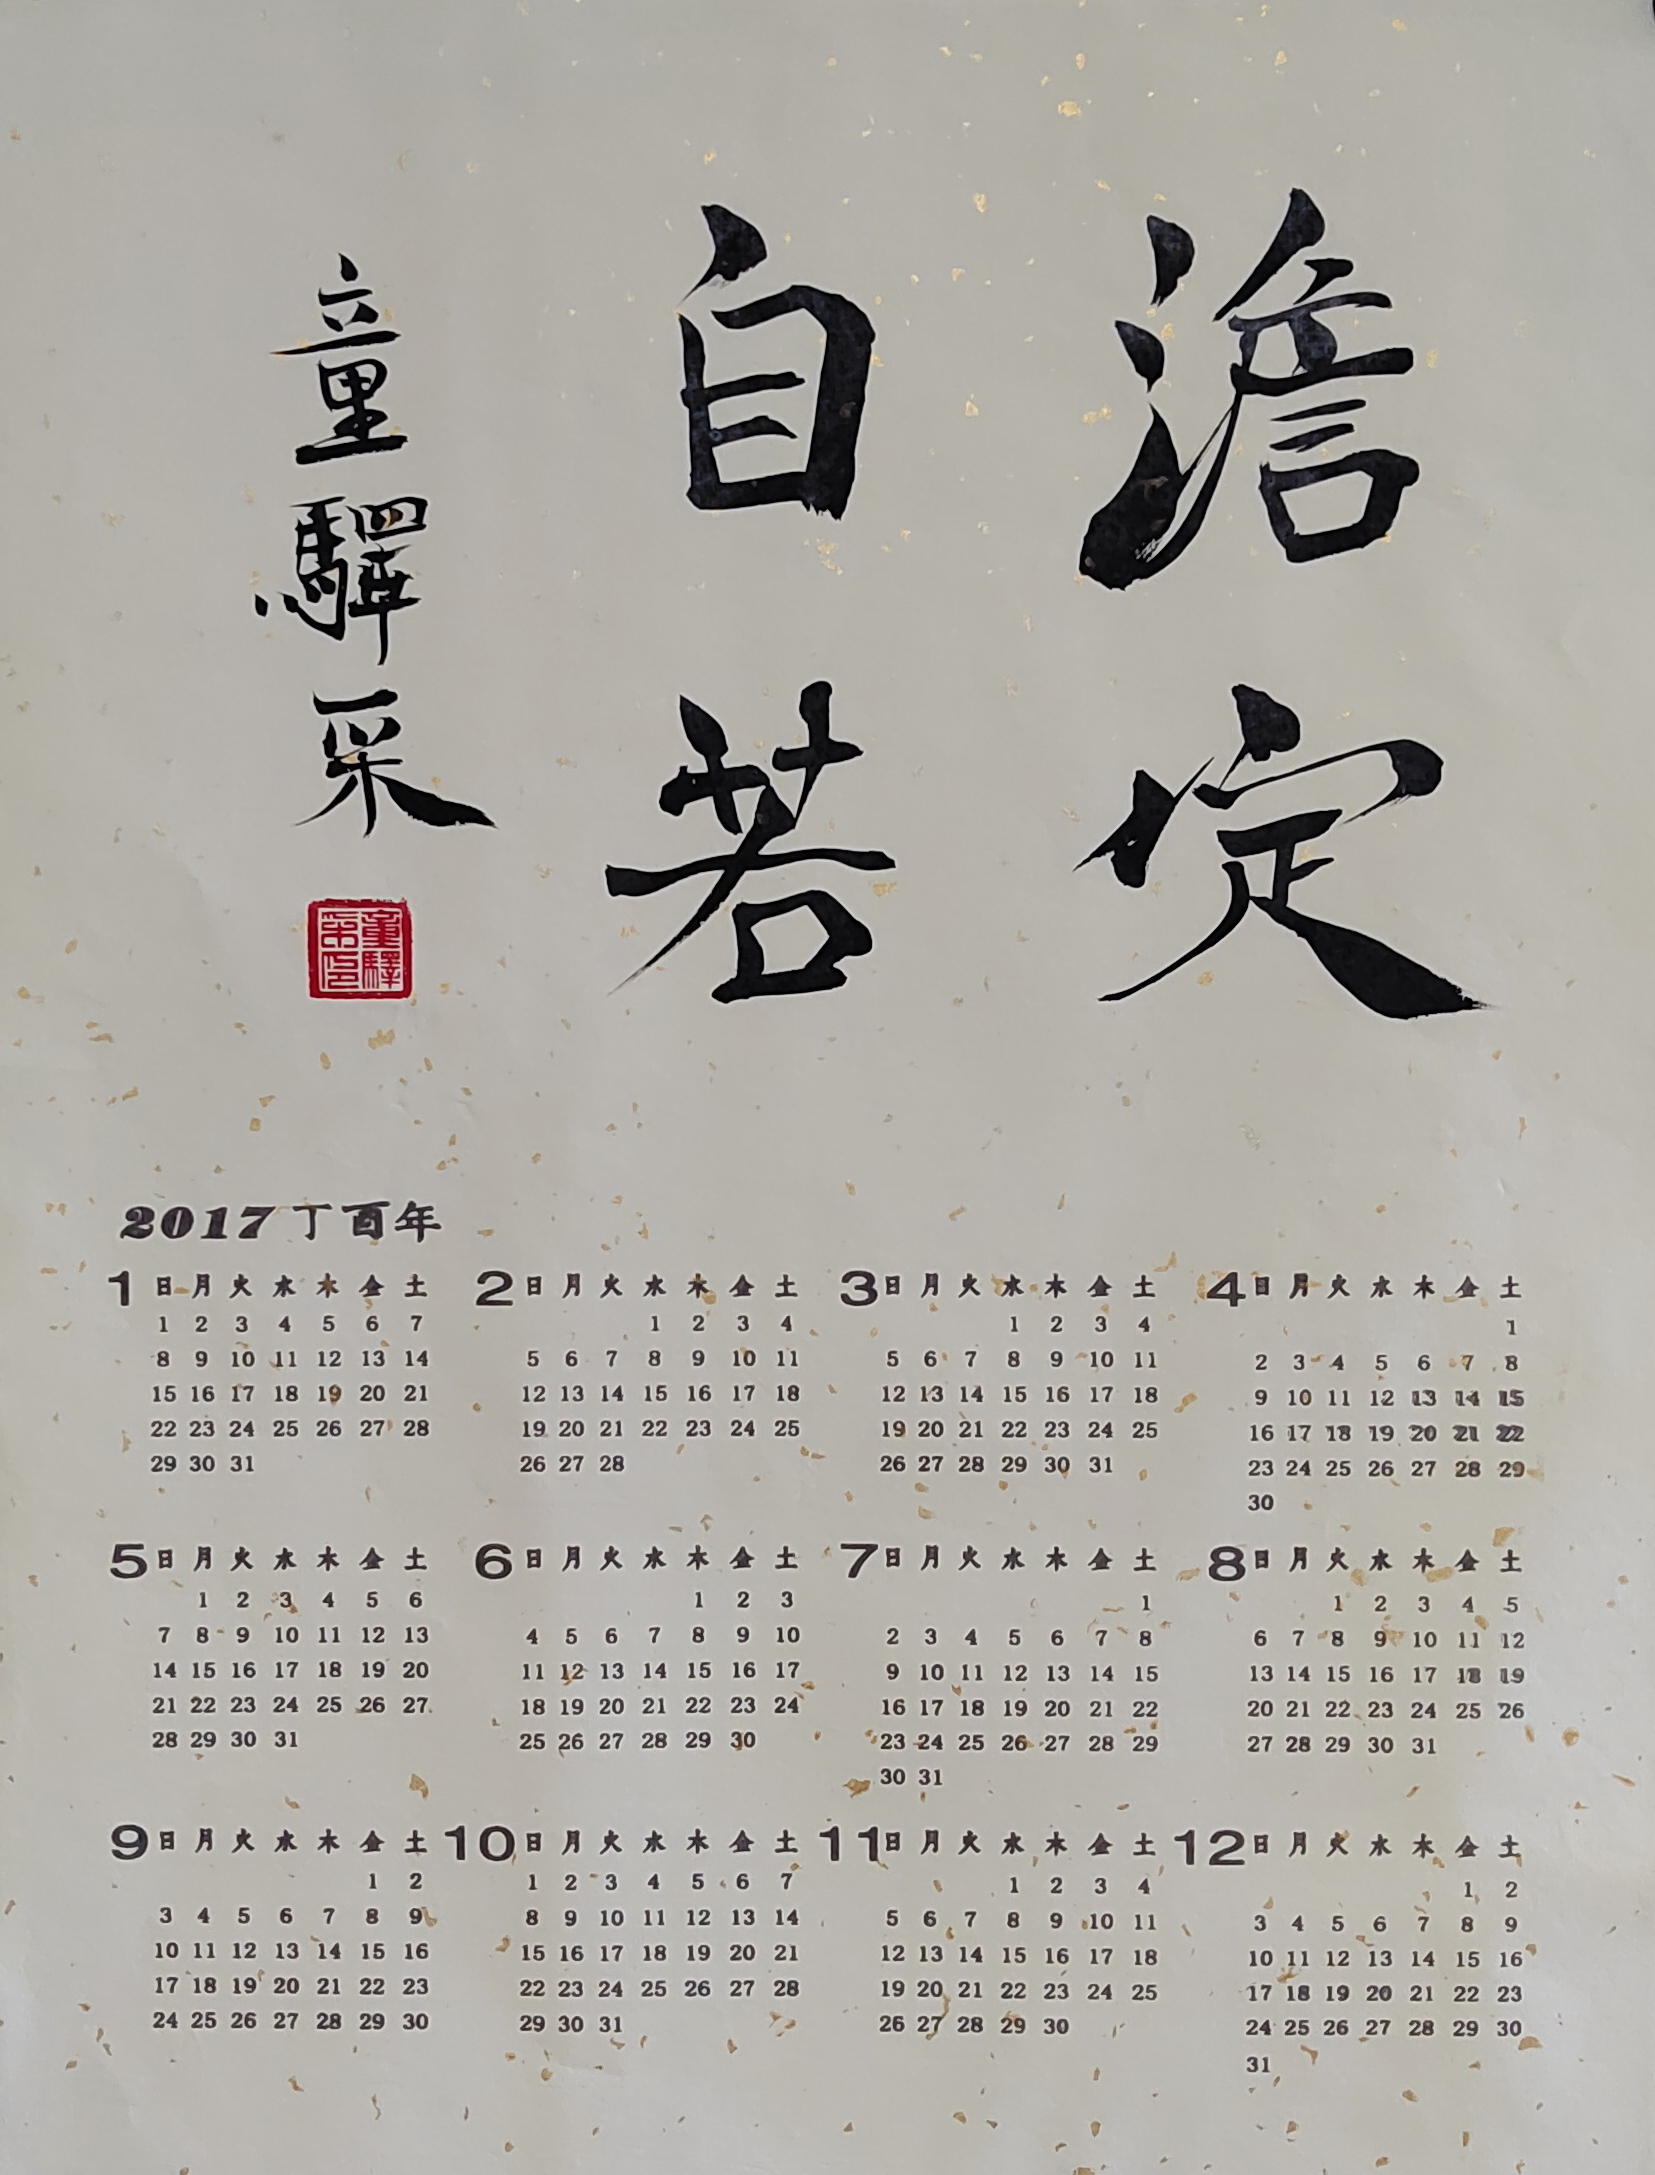 澹定
自若
童驛采
童驛
采印
2017丁酉年
1 日 月 火 水 木 金 土
1 2 3 4 5 6 7
8 9 10 11 12 13 14
15 16 17 18 19 20 21
22 23 24 25 26 27 28
29 30 31
2 日 月 火 水 木 金 土
1 2 3 4
5 6 7 8 9 10 11
12 13 14 15 16 17 18
19 20 21 22 23 24 25
26 27 28
3 日 月 火 水 木 金 土
1 2 3 4
5 6 7 8 9 10 11
12 13 14 15 16 17 18
19 20 21 22 23 24 25
26 27 28 29 30 31
4 日 月 火 水 木 金 土
1
2 3 4 5 6 7 8
9 10 11 12 13 14 15
16 17 18 19 20 21 22
23 24 25 26 27 28 29
30
5 日 月 火 水 木 金 土
1 2 3 4 5 6
7 8 9 10 11 12 13
14 15 16 17 18 19 20
21 22 23 24 25 26 27
28 29 30 31
6 日 月 火 水 木 金 土
1 2 3
4 5 6 7 8 9 10
11 12 13 14 15 16 17
18 19 20 21 22 23 24
25 26 27 28 29 30
7 日 月 火 水 木 金 土
1
2 3 4 5 6 7 8
9 10 11 12 13 14 15
16 17 18 19 20 21 22
23 24 25 26 27 28 29
30 31
8 日 月 火 水 木 金 土
1 2 3 4 5
6 7 8 9 10 11 12
13 14 15 16 17 18 19
20 21 22 23 24 25 26
27 28 29 30 31
9 日 月 火 水 木 金 土
1 2
3 4 5 6 7 8 9
10 11 12 13 14 15 16
17 18 19 20 21 22 23
24 25 26 27 28 29 30
10 日 月 火 水 木 金 土
1 2 3 4 5 6 7
8 9 10 11 12 13 14
15 16 17 18 19 20 21
22 23 24 25 26 27 28
29 30 31
11 日 月 火 水 木 金 土
1 2 3 4
5 6 7 8 9 10 11
12 13 14 15 16 17 18
19 20 21 22 23 24 25
26 27 28 29 30
12 日 月 火 水 木 金 土
1 2
3 4 5 6 7 8 9
10 11 12 13 14 15 16
17 18 19 20 21 22 23
24 25 26 27 28 29 30
31